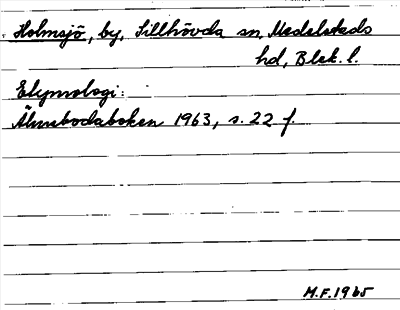 Holmsjö, by, Sillhövda sn, Medelstads
hd, Blek. l.
Etymologi:
Älmebodaboken 1963, s. 22 f.
M.F. 1965